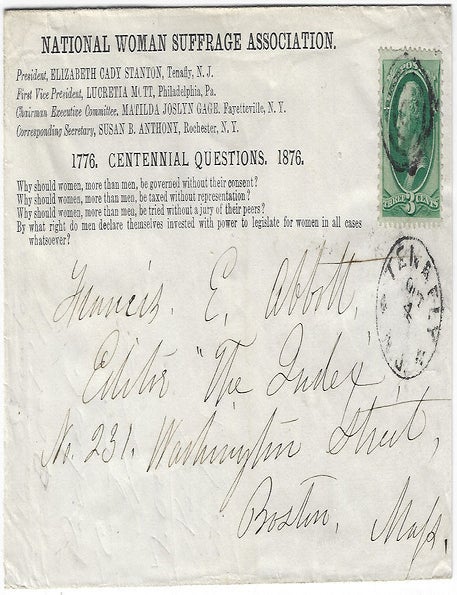 NATIONAL WOMAN SUFFRAGE ASSOCIATION.
President, ELIZABETH CADY STANTON, Tenafly, N. J.
First Vice President, LUCRETIA MOTT, Philadelphia, Pa.
Chairman Executive Committee, MATILDA JOSLYN GAGE, Fayetteville, N. Y.
Corresponding Secretary, SUSAN B. ANTHONY, Rochester, N. Y.
1776. CENTENNIAL QUESTIONS. 1876.
Why should women, more than men, be governed without their consent?
Why should women, more than men, be taxed without representation?
Why should women, more than men, be tried without a jury of their peers?
By what right do men declare themselves invested with power to legislate for women in all cases
whatsoever?
THREE 3 CENTS
TENAFLY
N J
Francis. E. Abbott,
Editor "The Index
No. 231. Washington Street,
Boston, Mass,